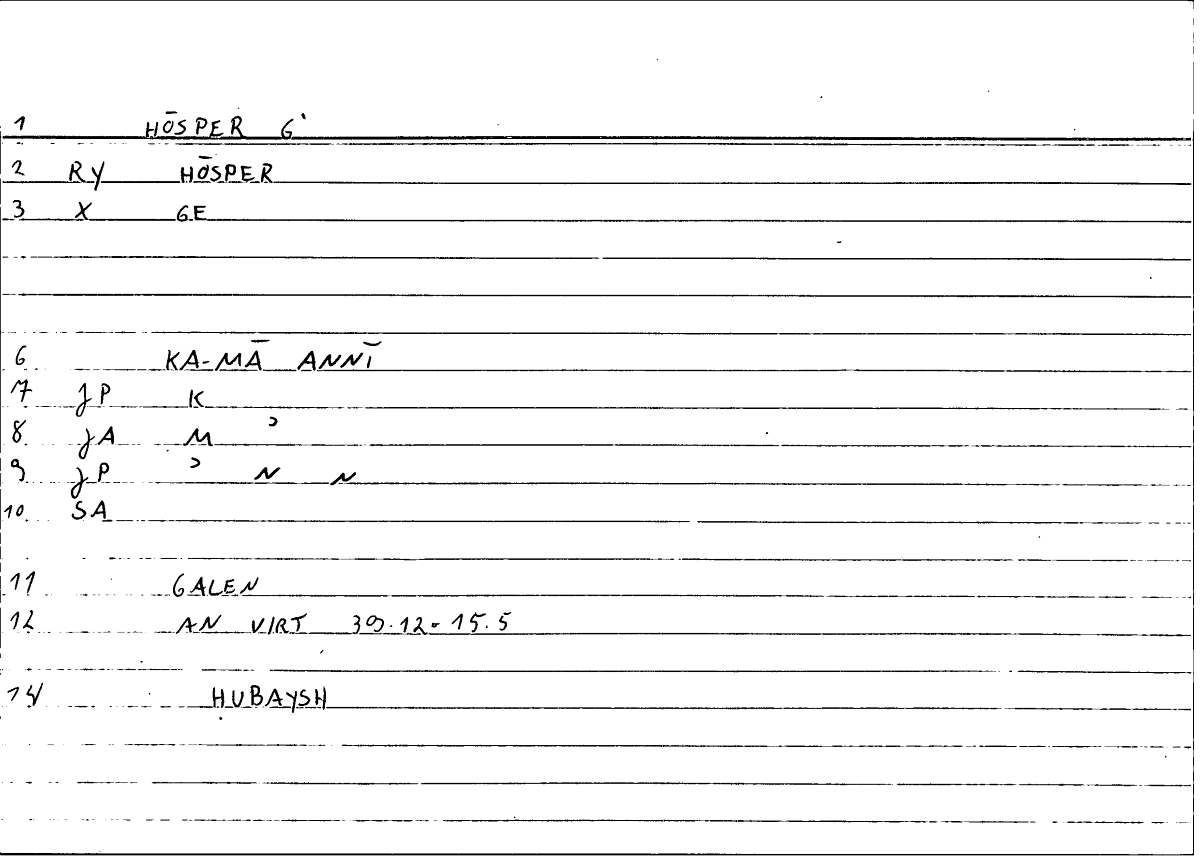 1 HŌSPER G'
2 RY HŌSPER
3 X GE
6 KA-MĀ ANNĪ
7 JP K
8 JA M ʾ
9 JP ʾ N N
10 SA
11 GALEN
12 AN VIRT 39.12 = 15.5
14 ḤUBAYSH